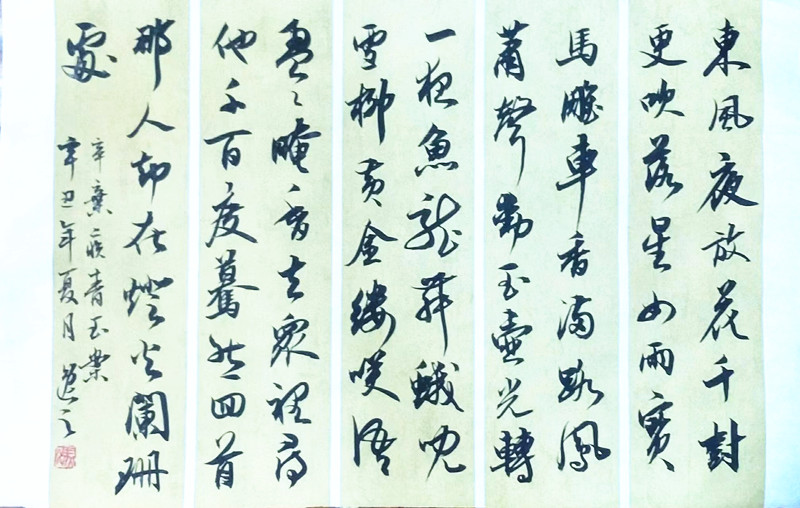 東風夜放花千樹
更吹落星如雨寶
馬雕車香滿路鳳
簫聲動玉壺光轉
一夜魚龍舞蛾兒
雪柳黃金縷笑語
盈〻暗香去眾裡尋
他千百度驀然回首
那人却在燈火闌珊
處
辛棄疾青玉案
辛丑年夏月